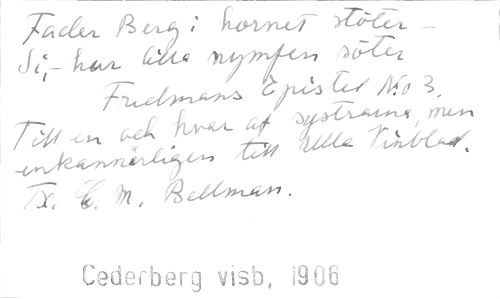 Fader Berg i hornet stöter –
Si, – hur lilla nymfen söter
Fredmans Epistel No 3.
Till en och hvar af systrarna, men
enkannerligen till Ulla Vinblad.
Tx. C. M. Bellman.
Cederberg visb, 1906